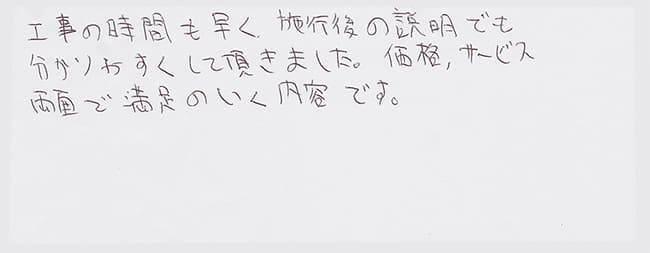 工事の時間も早く、施行後の説明でも
分かりやすくして頂きました。価格,サービス
両面で満足のいく内容です。